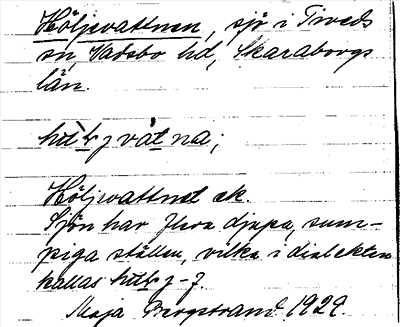 Höljevattnen, sjö i Tiveds
sn Vadsbo hd, Skaraborgs
län.
Höljevattnet ek.
Sjön har flera djupa, sum-
piga ställen, vilka i dialekten
kallas
Maja Bergstrand 1929.